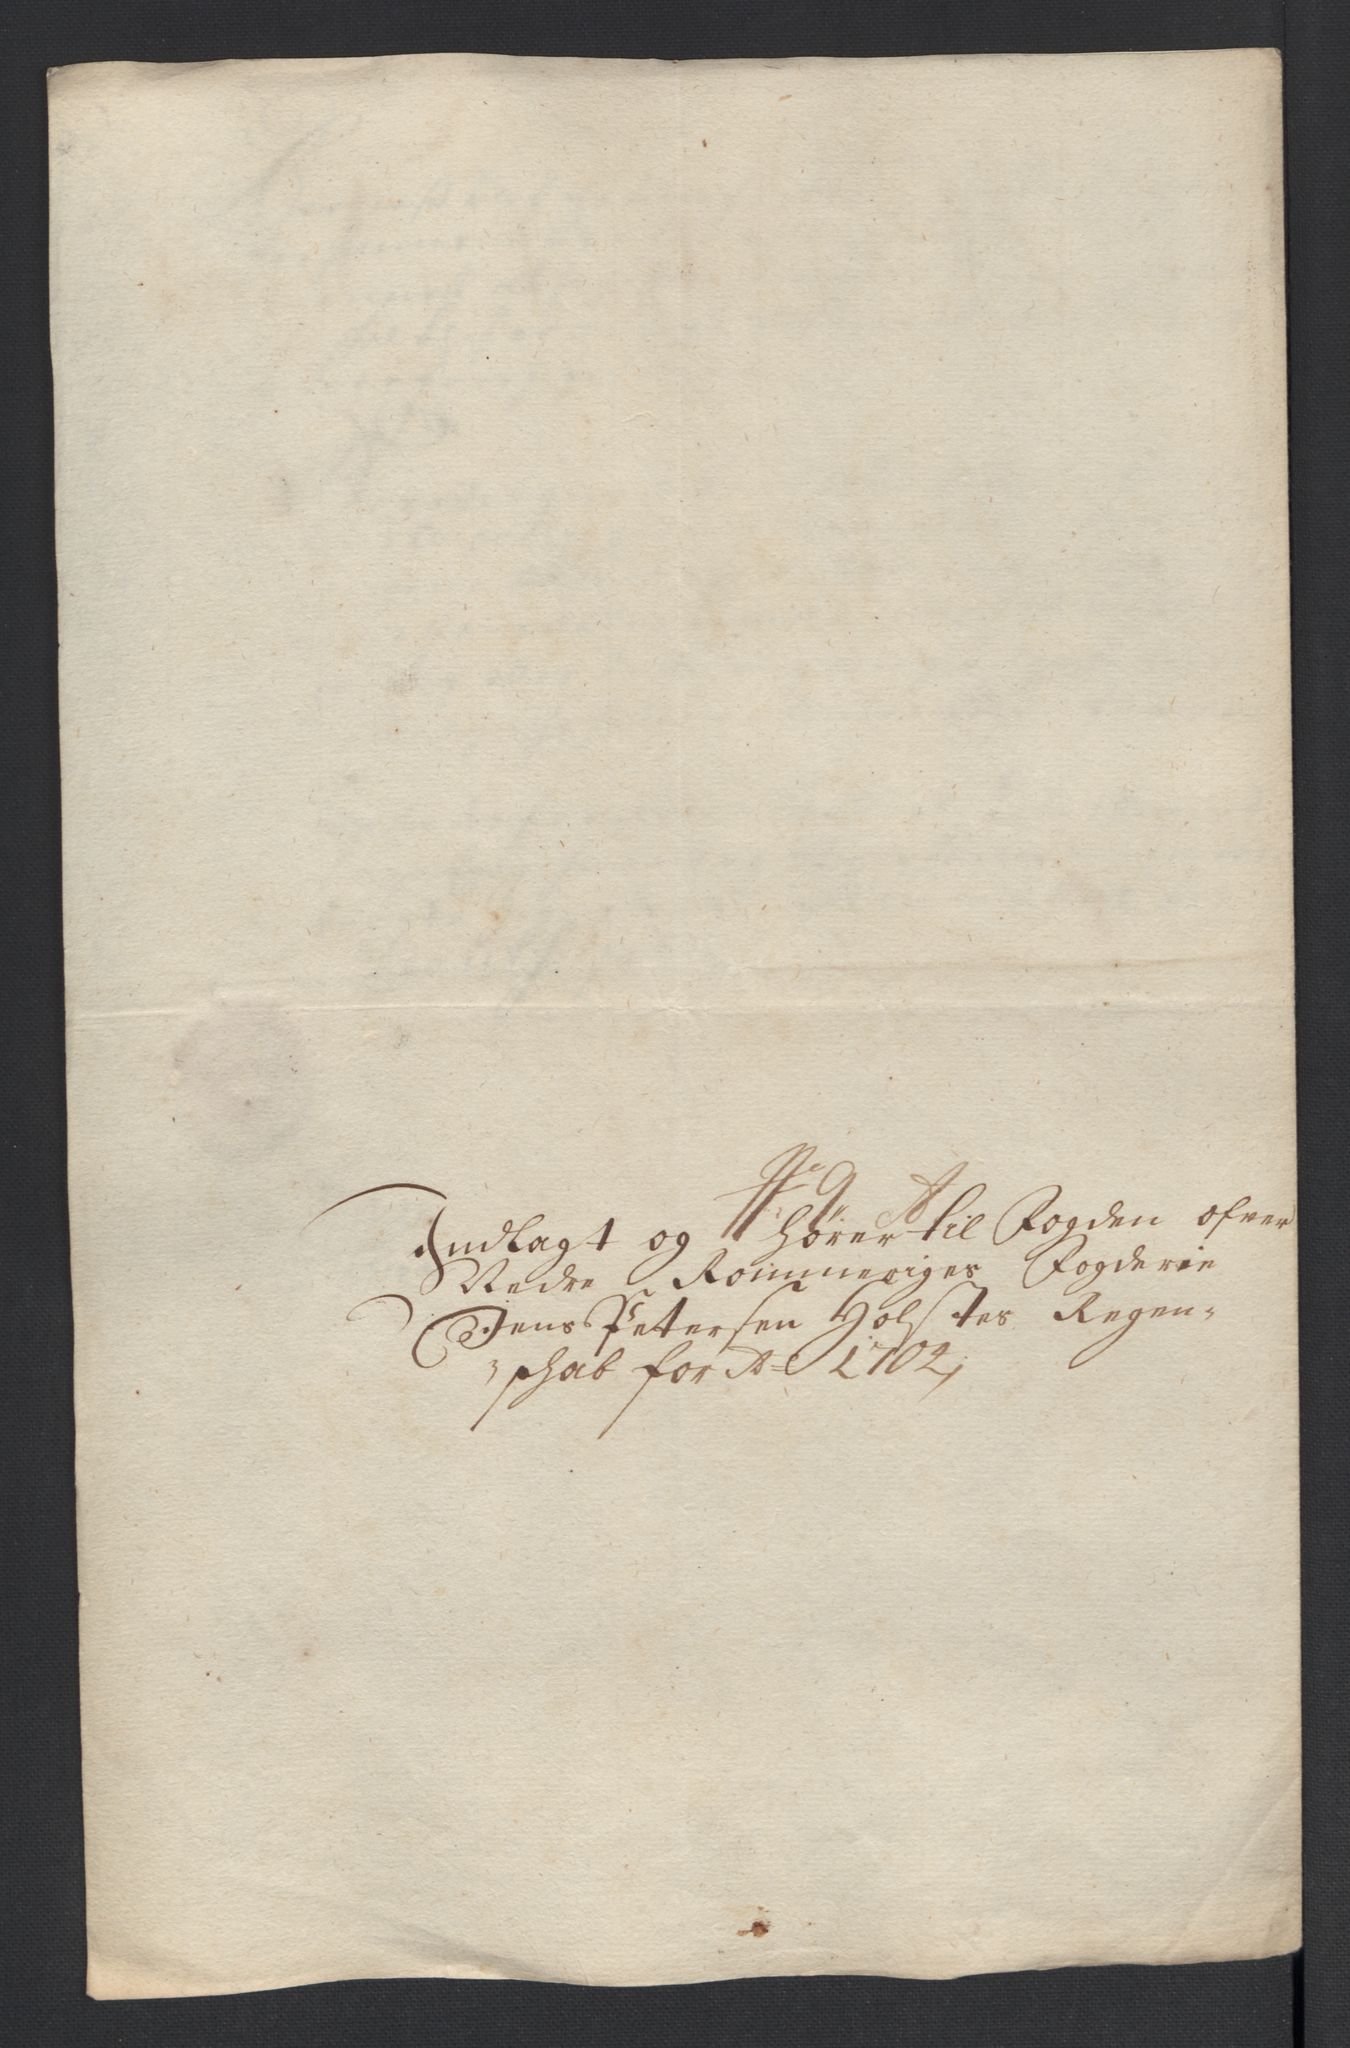 No 9 A
Indlagt og hører til Fogden ofver
Nedre Rommeriges Fogderie
Jens Petersen Holstes Regen-
schab for Ao 1702,